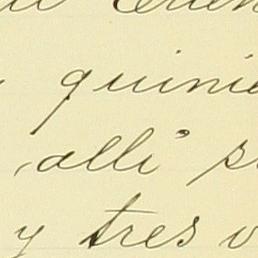 quinie
alli s
y tres v